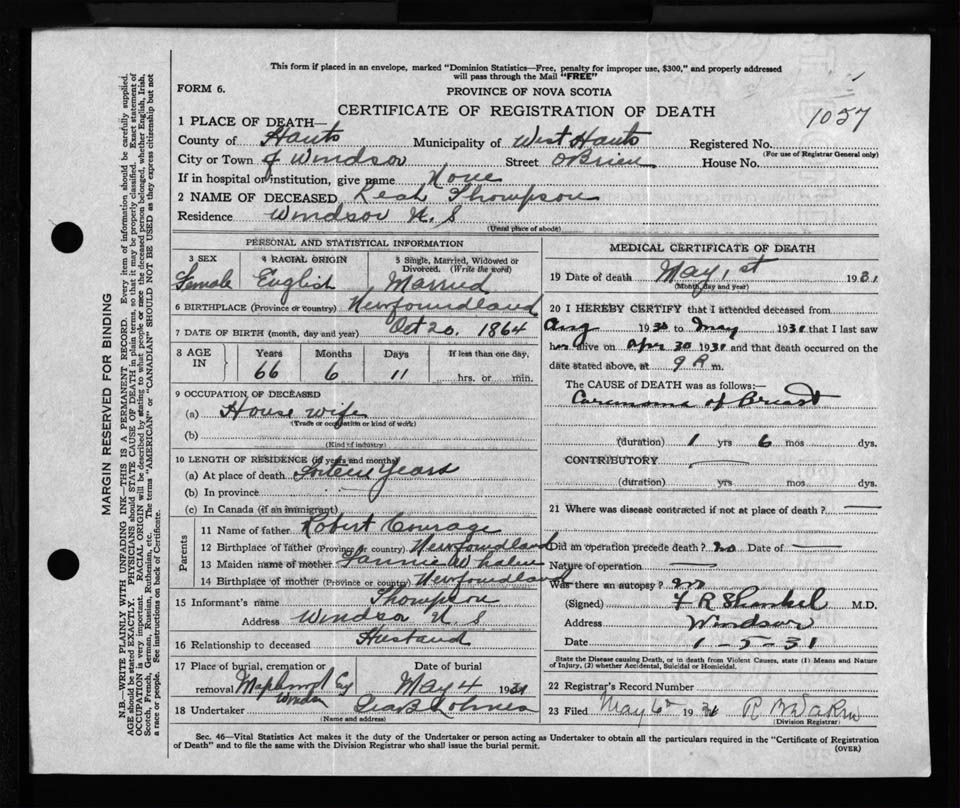 This form if placed in an envelope, marked "Dominion Statistics—Free, penalty for improper use, $300," and properly addressed
will pass through the Mail "FREE"
FORM 6.
PROVINCE OF NOVA SCOTIA
CERTIFICATE OF REGISTRATION OF DEATH
1057
1 PLACE OF DEATH—
County of Hants Municipality of West Hants Registered No.
(For use of Registrar General only)
City or Town of Windsor Street O'Brien House No.
If in hospital or institution, give name None
2 NAME OF DECEASED Leah Thompson
Residence Windsor N. S
(Usual place of abode)
PERSONAL AND STATISTICAL INFORMATION
3 SEX Female
4 RACIAL ORIGIN English
5 Single, Married, Widowed or Divorced. (Write the word) Married
6 BIRTHPLACE (Province or country) Newfoundland
7 DATE OF BIRTH (month, day and year) Oct 20. 1864
8 AGE IN Years Months Days If less than one day,
66 6 11 hrs. or min.
9 OCCUPATION OF DECEASED
(a) House wife
(Trade or occupation or kind of work)
(b)
(Kind of industry)
10 LENGTH OF RESIDENCE (in years and months)
(a) At place of death years
(b) In province
(c) In Canada (if an immigrant)
Parents
11 Name of father Robert Courage
12 Birthplace of father (Province or country) Newfoundland
13 Maiden name of mother Fannie Whalen
14 Birthplace of mother (Province or country) Newfoundland
15 Informant's name Thompson
Address Windsor N. S
16 Relationship to deceased Husband
17 Place of burial, cremation or removal Windsor
Date of burial May 4 1931
18 Undertaker Holmes
(Name and address)
MEDICAL CERTIFICATE OF DEATH
19 Date of death May 1st 1931
(Month, day and year)
20 I HEREBY CERTIFY that I attended deceased from
Aug 1930 to May 1931 that I last saw
her alive on Apr 30 1931 and that death occurred on the
date stated above, at 9 P. m.
The CAUSE OF DEATH was as follows:—
Carcinoma of Breast
(duration) 1 yrs 6 mos dys.
CONTRIBUTORY
(duration) yrs. mos. dys.
21 Where was disease contracted if not at place of death?
Did an operation precede death? no Date of
Nature of operation
Was there an autopsy? no
(Signed) F R Shankel M.D.
Address Windsor
Date 1-5-31
State the Disease causing Death, or in death from Violent Causes, state (1) Means and Nature
of Injury, (2) whether Accidental, Suicidal or Homicidal.
22 Registrar's Record Number
23 Filed May 6 1931
(Division Registrar)
Sec. 46—Vital Statistics Act makes it the duty of the Undertaker or person acting as Undertaker to obtain all the particulars required in the "Certificate of Registration
of Death" and to file the same with the Division Registrar who shall issue the burial permit.
(OVER)
MARGIN RESERVED FOR BINDING
N.B.—WRITE PLAINLY WITH UNFADING INK—THIS IS A PERMANENT RECORD. Every item of information should be carefully supplied.
AGE should be stated EXACTLY. PHYSICIANS should STATE CAUSE OF DEATH in plain terms, so that it may be properly classified. Exact statement of
OCCUPATION is very important. RACIAL ORIGIN will be described by stating to what people or race the deceased person belonged, whether English, Irish,
Scotch, French, German, Russian, Ruthenian, etc. The terms "AMERICAN" or "CANADIAN" SHOULD NOT BE USED as they express citizenship but not
a race or people. See instructions on back of Certificate.